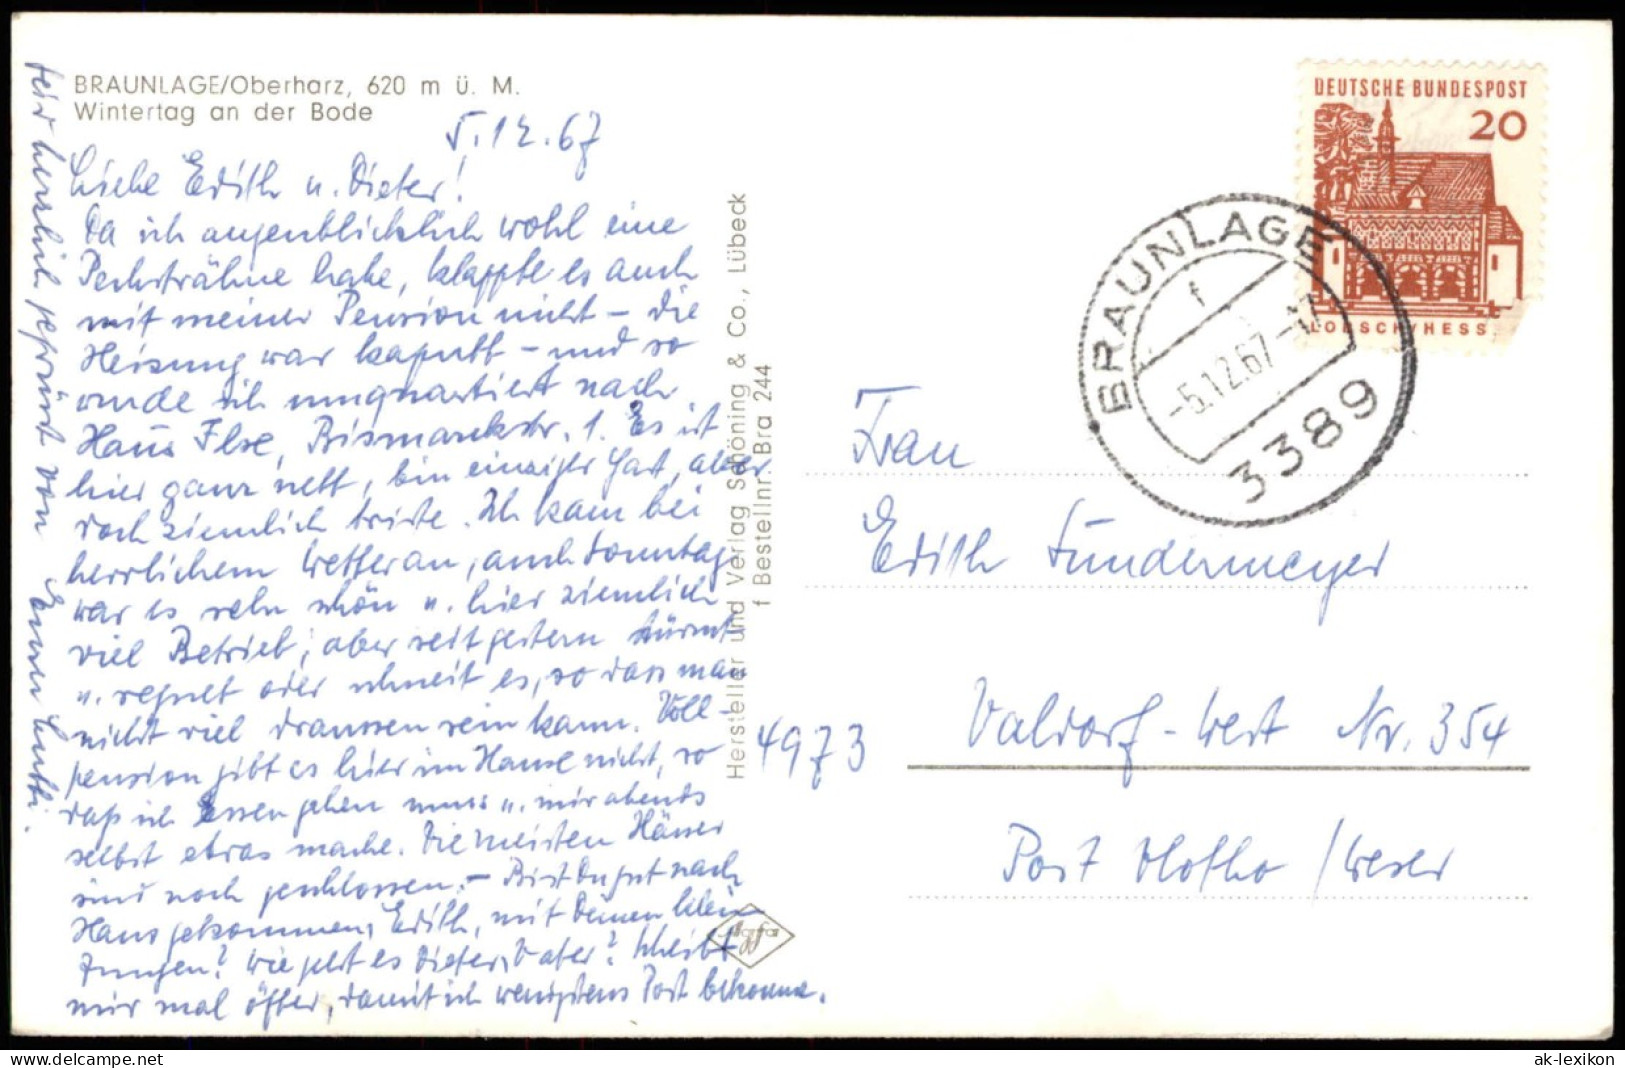 BRAUNLAGE/Oberharz, 620 m ü. M.
Wintertag an der Bode
5.12.67
Liebe Edith u. Dieter!
Da ich augenblicklich wohl eine
Pechsträhne habe, klappte es auch
mit meiner Pension nicht – die
Heizung war kaputt – und so
wurde ich umquartiert nach
Haus Ilse, Bismarckstr. 1. Es ist
hier ganz nett, bin einziger Gast, aber
doch ziemlich triste. Ich kam bei
herrlichem Wetter an, auch Sonntag
war es sehr schön u. hier ziemlich
viel Betrieb; aber seit gestern stürmt
u. regnet oder schneit es, so dass man
nicht viel draussen sein kann. Voll-
pension gibt es hier im Hause nicht, so
daß ich Essen gehen muss u. mir abends
selbst etwas mache. Die meisten Häuser
sind noch geschlossen. – Bist Du gut nach
Haus gekommen, Edith, mit Deinen klein
Jungen? Wie geht es Dieter, Vater? Schreibt
mir mal öfter, damit ich wenigstens Post bekomme.
Seid herzlich gegrüsst von Eurer Mutti.
Hersteller und Verlag Schöning & Co., Lübeck
f Bestellnr. Bra 244
Agfa
DEUTSCHE BUNDESPOST
20
LORSCH/HESS.
BRAUNLAGE
f
-5.12.67-17
3389
Frau
Edith Sundermeyer
4973 Valdorf-West Nr. 354
Post Vlotho/Weser
ak-lexikon
www.delcampe.net